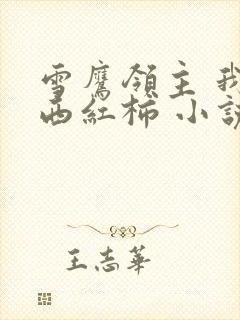 雪鹰領主 我
西紅柿 小說
王志華